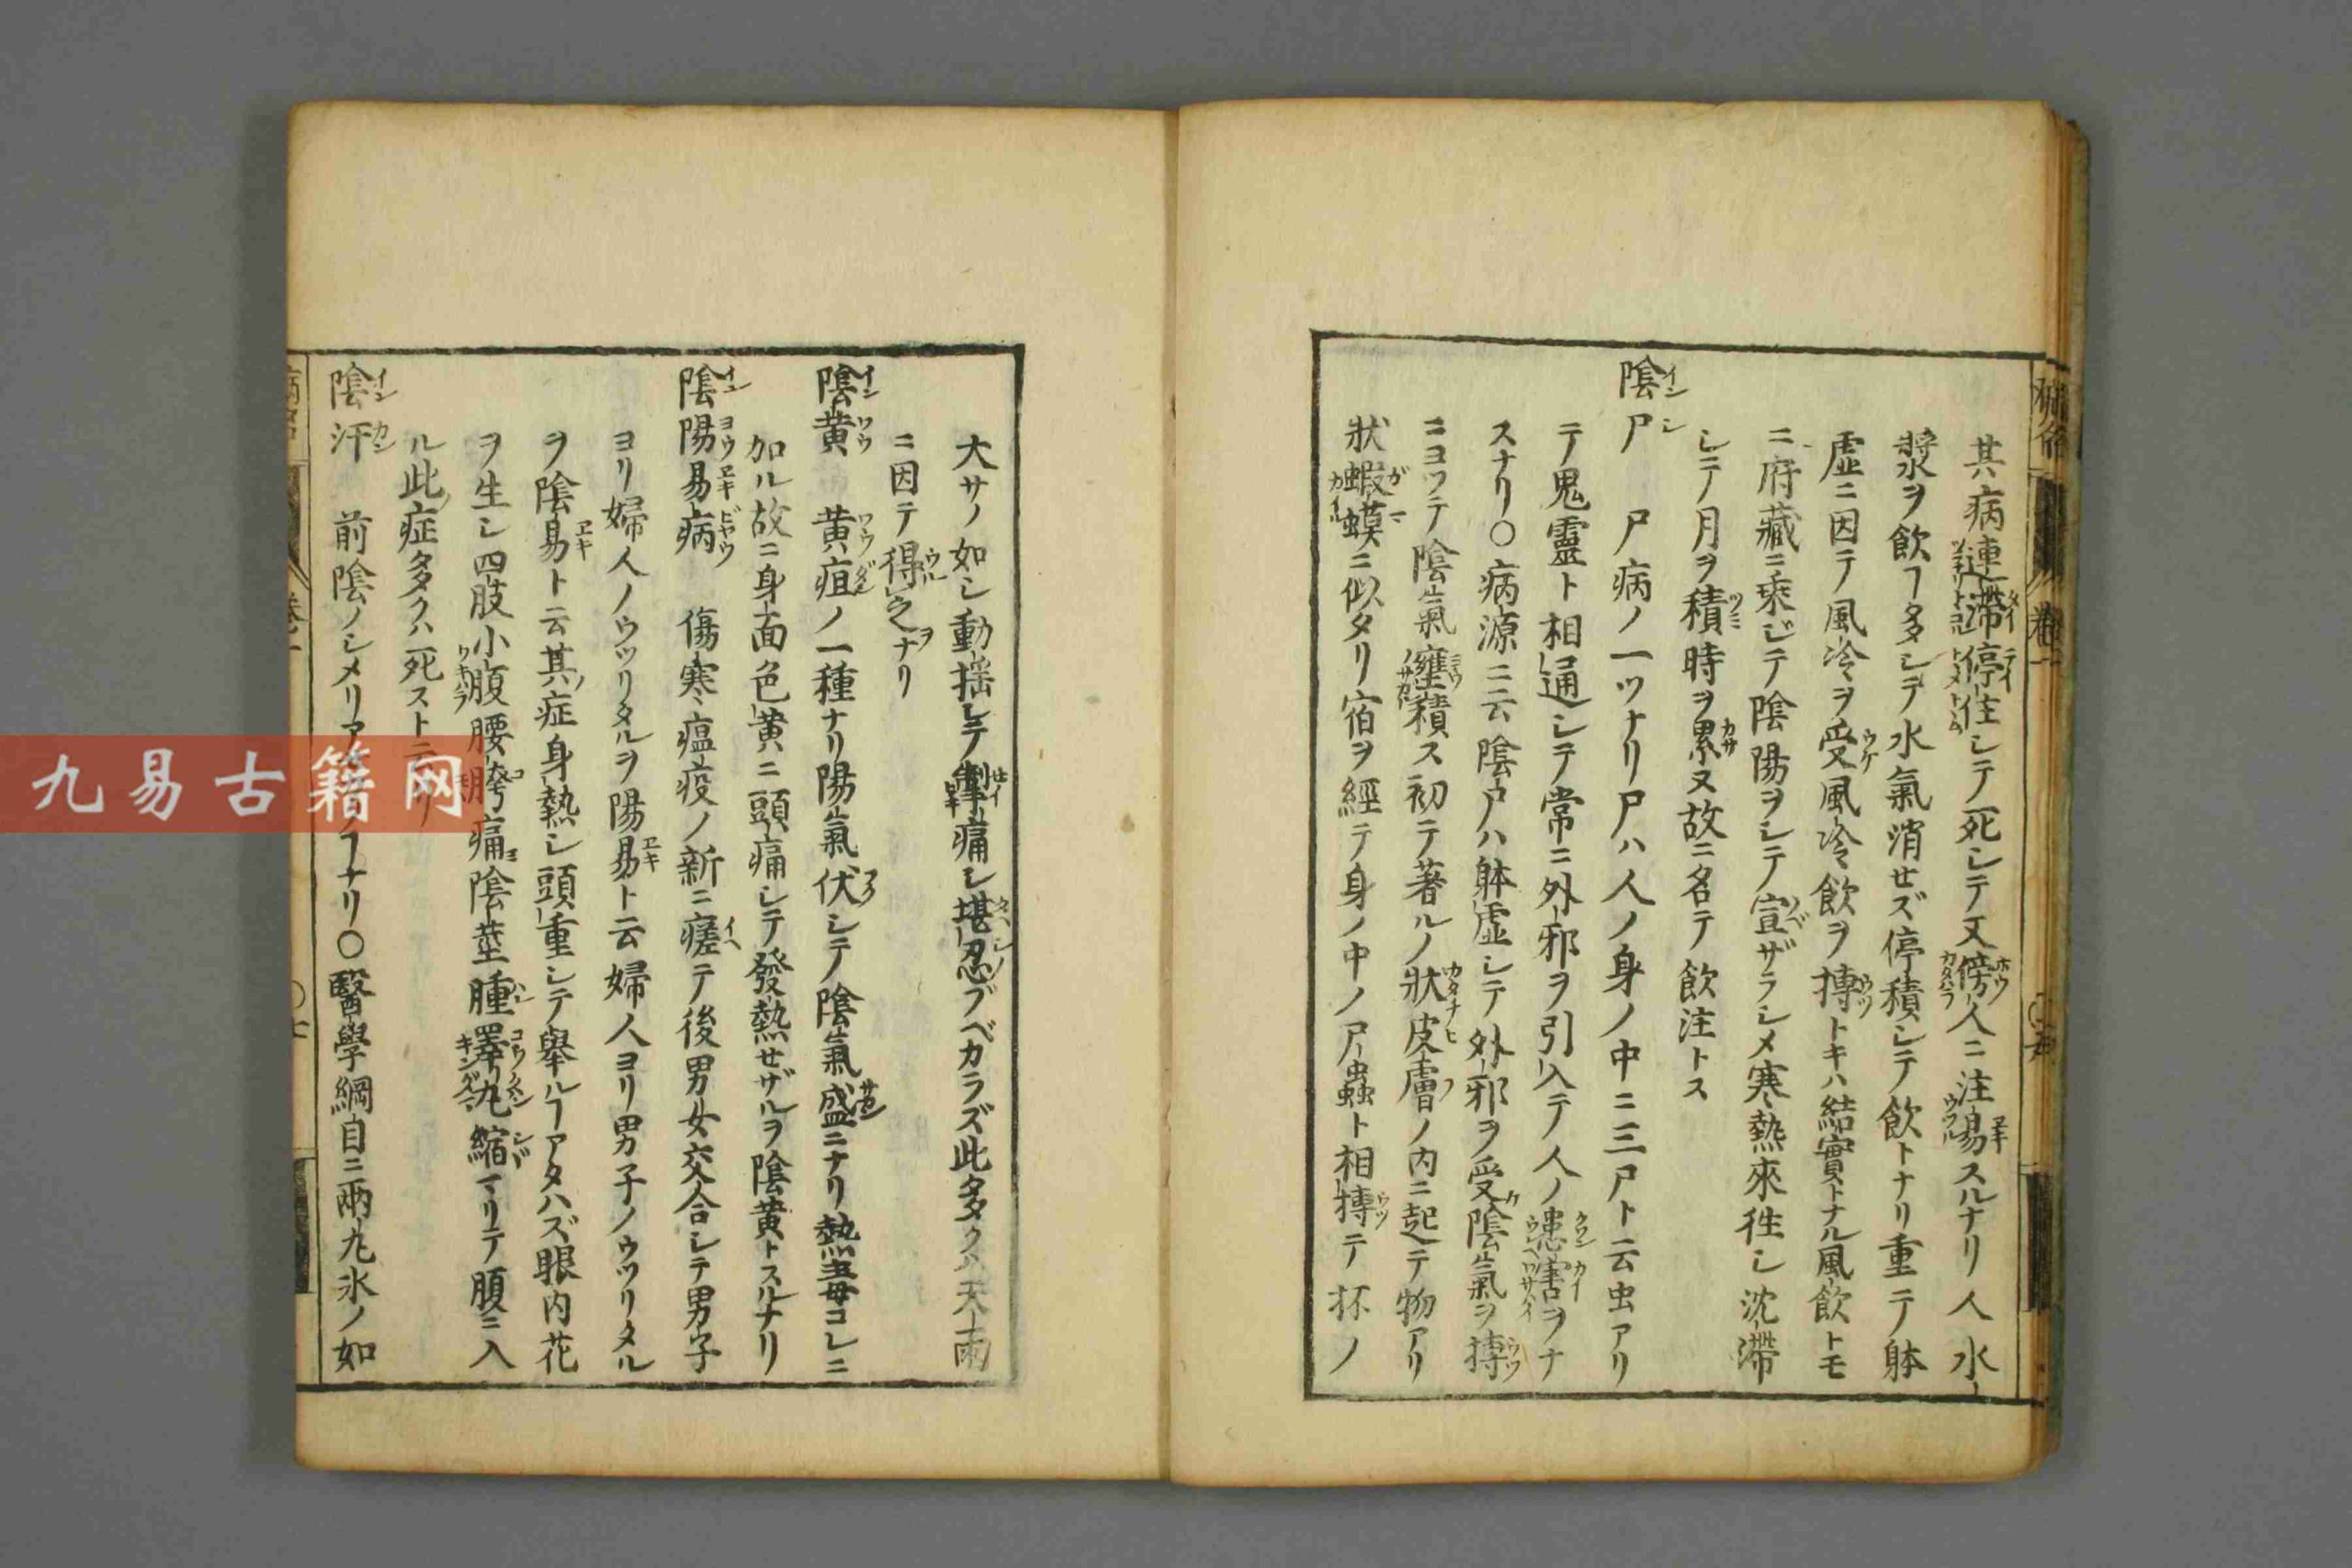 其病連滯停住シテ死シテ又傍人ニ注易スルナリ人水
漿ヲ飲ヿ多シテ水氣消せズ停積シテ飲トナリ重テ躰
虛ニ因テ風冷ヲ受風冷飲ヲ搏トキハ結實トナル風飲トモ
ニ府藏ニ乘ジテ陰陽ヲシテ宣ザラシメ寒熱來徃シ沈滯
シテ月ヲ積時ヲ累又故ニ名テ飲注トス
陰尸 尸病ノ一ツナリ尸ハ人ノ身ノ中ニ三尸ト云虫アリ
テ鬼靈ト相通シテ常ニ外邪ヲ引入テ人ノ患害ヲナ
スナリ○病源ニ云陰尸ハ躰虛シテ外邪ヲ受陰氣ヲ搏
ニヨツテ陰氣壅積ス初テ著ルノ狀皮膚ノ内ニ起テ物アリ
狀蝦蟇ニ似タリ宿ヲ經テ身ノ中ノ尸蟲ト相摶テ杯ノ
大サノ如シ動揺シテ掣痛シ堪忍ブベカラズ此多クハ天雨
ニ因テ得之ナリ
陰黄 黄疸ノ一種ナリ陽氣伏シテ陰氣盛ニナリ熱毒コレニ
加ル故ニ身面色黄ニ頭痛シテ發熱せザルヲ陰黄トスルナリ
陰陽易病 傷寒瘟疫ノ新ニ瘥テ後男女交合シテ男子
ヨリ婦人ノウツリタルヲ陽易ト云婦人ヨリ男子ノウツリタル
ヲ陰易ト云其症身熱シ頭重シテ舉ルヿアタハズ眼内花
ヲ生シ四肢小腹腰胯痛陰莖腫睪丸縮マリテ腹ニ入
ル此症多クハ死スト云リ
陰汗 前陰ノシメリアせハヿナリ○醫學綱目ニ兩丸氷ノ如
九易古籍网